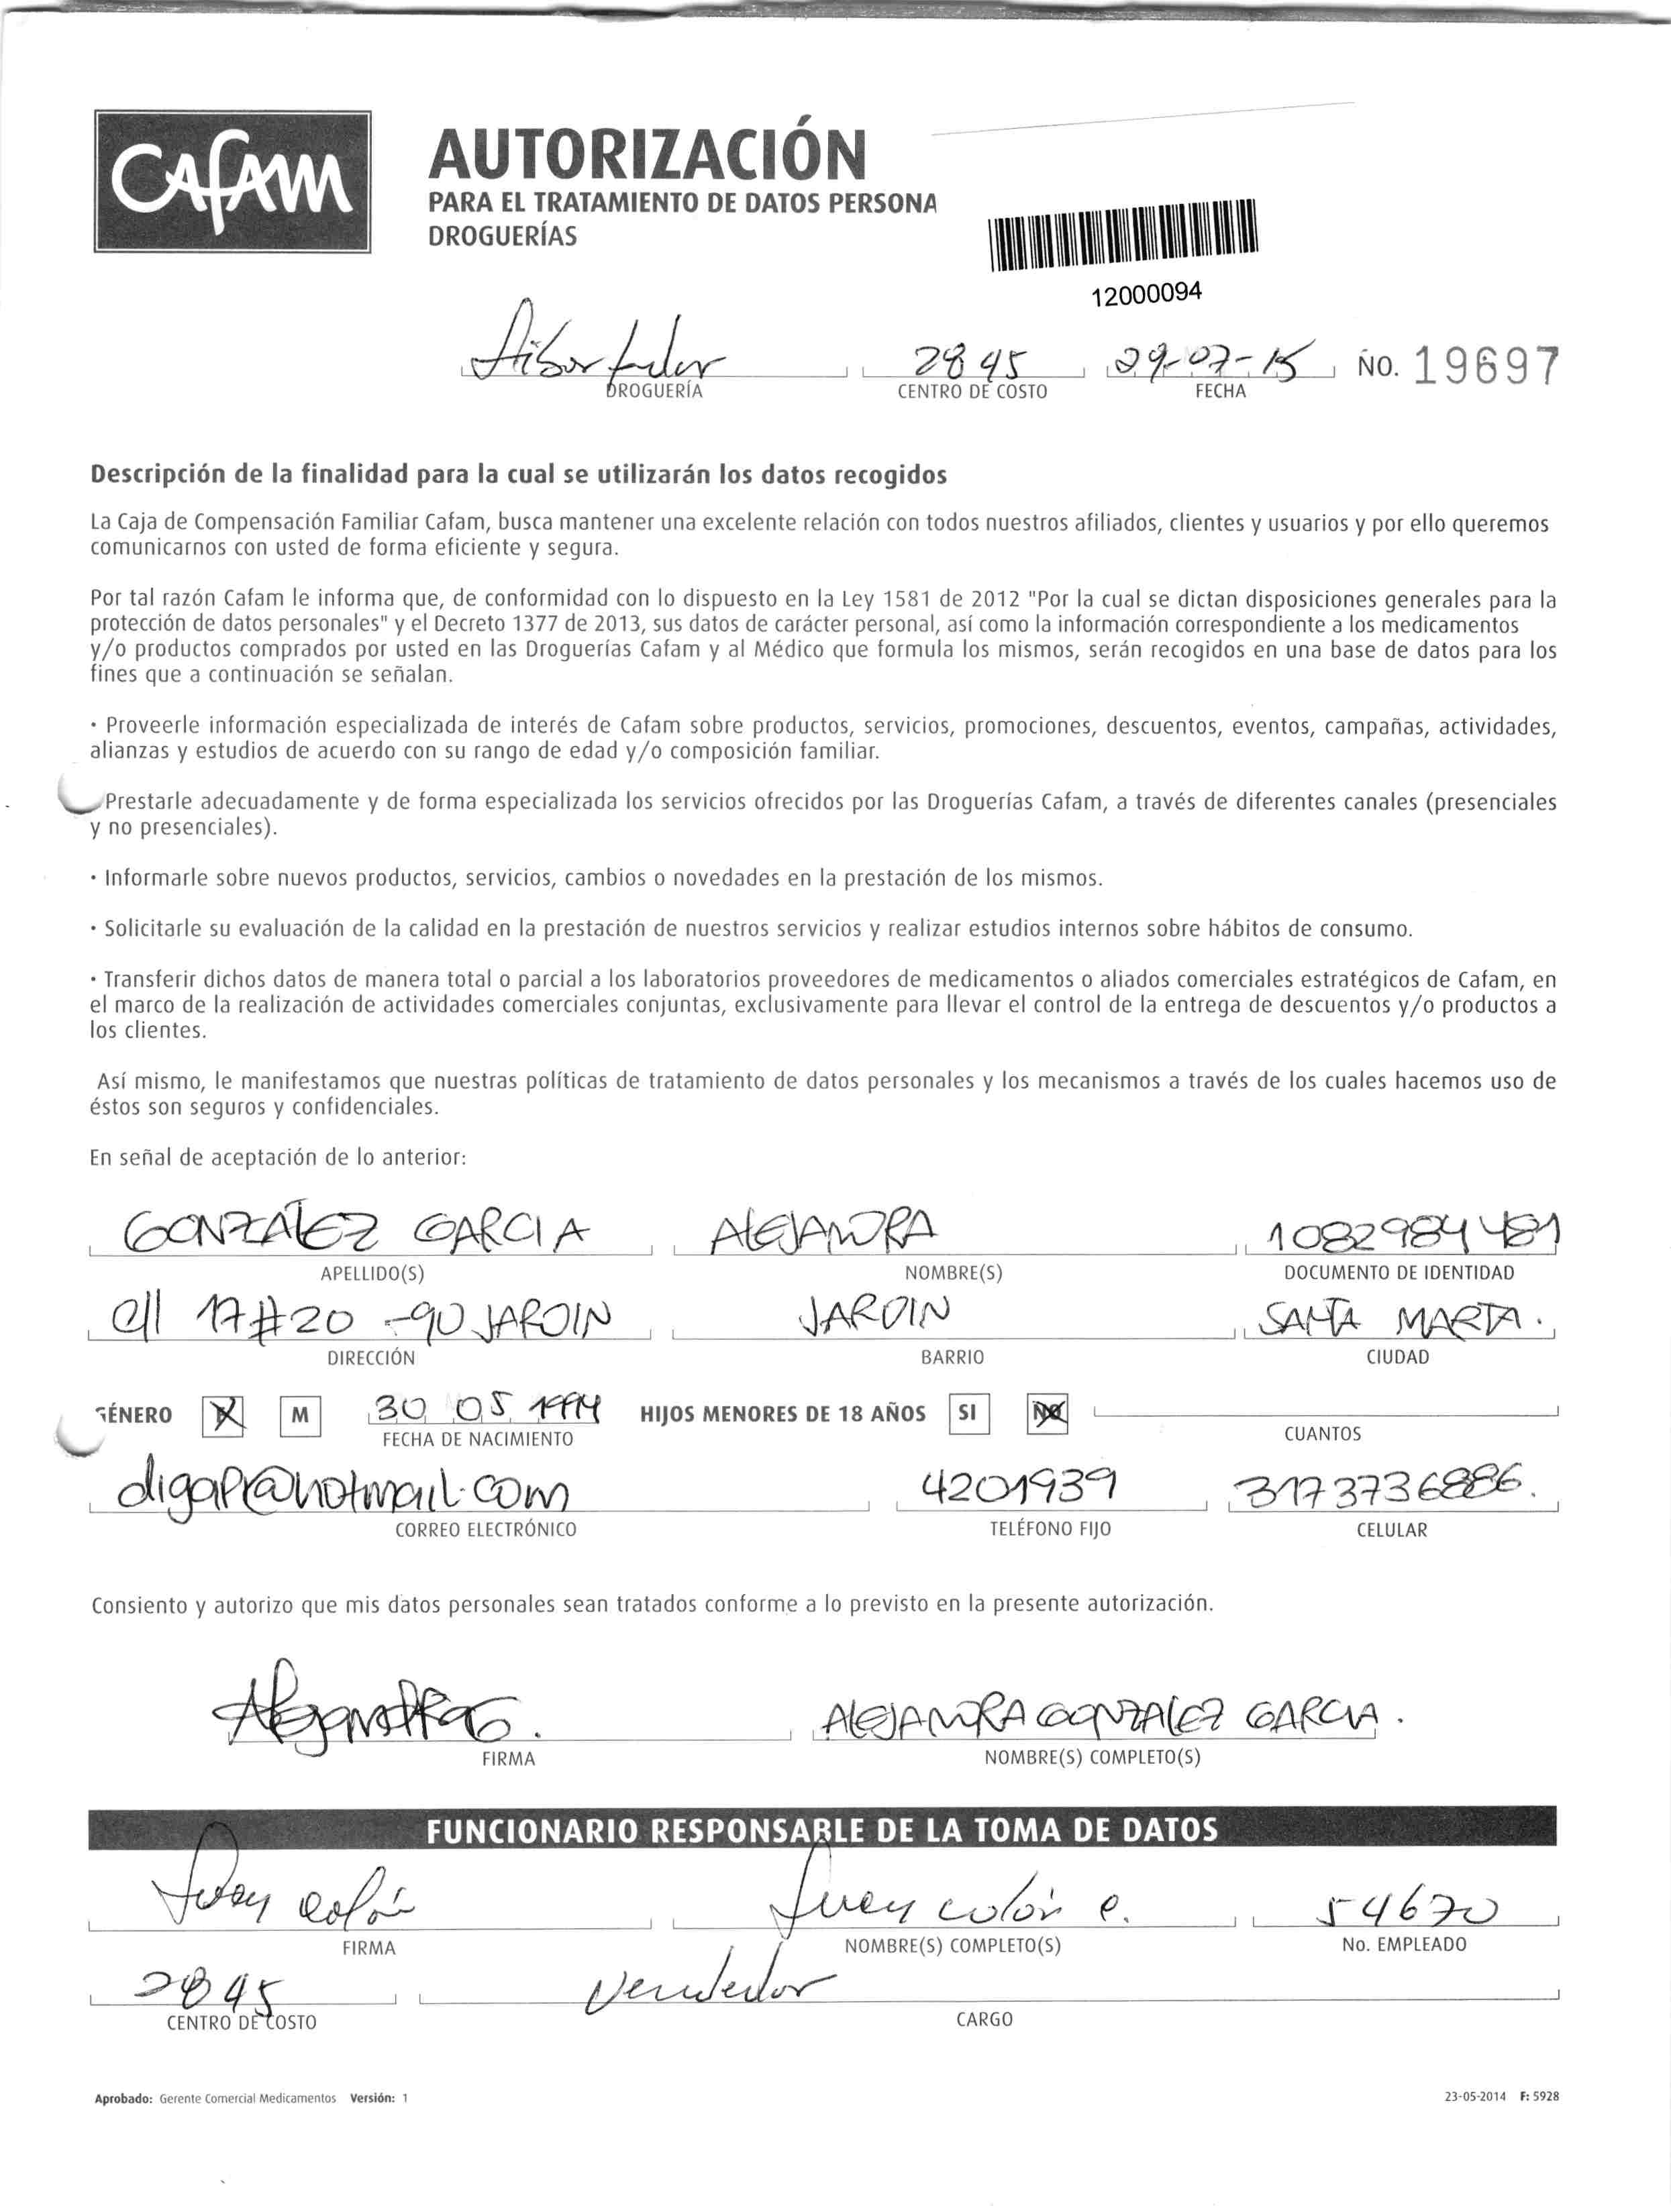 CAFAM
AUTORIZACIÓN
PARA EL TRATAMIENTO DE DATOS PERSONA
DROGUERÍAS
12000094
2845 29-07-15 NO. 19697
DROGUERÍA CENTRO DE COSTO FECHA
Descripción de la finalidad para la cual se utilizarán los datos recogidos
La Caja de Compensación Familiar Cafam, busca mantener una excelente relación con todos nuestros afiliados, clientes y usuarios y por ello queremos
comunicarnos con usted de forma eficiente y segura.
Por tal razón Cafam le informa que, de conformidad con lo dispuesto en la Ley 1581 de 2012 "Por la cual se dictan disposiciones generales para la
protección de datos personales" y el Decreto 1377 de 2013, sus datos de carácter personal, así como la información correspondiente a los medicamentos
y/o productos comprados por usted en las Droguerías Cafam y al Médico que formula los mismos, serán recogidos en una base de datos para los
fines que a continuación se señalan.
· Proveerle información especializada de interés de Cafam sobre productos, servicios, promociones, descuentos, eventos, campañas, actividades,
alianzas y estudios de acuerdo con su rango de edad y/o composición familiar.
Prestarle adecuadamente y de forma especializada los servicios ofrecidos por las Droguerías Cafam, a través de diferentes canales (presenciales
y no presenciales).
· Informarle sobre nuevos productos, servicios, cambios o novedades en la prestación de los mismos.
· Solicitarle su evaluación de la calidad en la prestación de nuestros servicios y realizar estudios internos sobre hábitos de consumo.
· Transferir dichos datos de manera total o parcial a los laboratorios proveedores de medicamentos o aliados comerciales estratégicos de Cafam, en
el marco de la realización de actividades comerciales conjuntas, exclusivamente para llevar el control de la entrega de descuentos y/o productos a
los clientes.
Así mismo, le manifestamos que nuestras políticas de tratamiento de datos personales y los mecanismos a través de los cuales hacemos uso de
éstos son seguros y confidenciales.
En señal de aceptación de lo anterior:
GONZALEZ GARCIA ALEJANDRA 1082984481
APELLIDO(S) NOMBRE(S) DOCUMENTO DE IDENTIDAD
Cll 17 #20 -90 JARDIN JARDIN SANTA MARTA.
DIRECCIÓN BARRIO CIUDAD
GÉNERO X M 30 05 1994 HIJOS MENORES DE 18 AÑOS SI NO
FECHA DE NACIMIENTO CUANTOS
digap@hotmail.com 4201939 3173736886.
CORREO ELECTRÓNICO TELÉFONO FIJO CELULAR
Consiento y autorizo que mis datos personales sean tratados conforme a lo previsto en la presente autorización.
ALEJANDRA GONZALEZ GARCIA.
FIRMA NOMBRE(S) COMPLETO(S)
FUNCIONARIO RESPONSABLE DE LA TOMA DE DATOS
colón colón e. 54670
FIRMA NOMBRE(S) COMPLETO(S) No. EMPLEADO
2845 Vendedor
CENTRO DE COSTO CARGO
Aprobado: Gerente Comercial Medicamentos Versión: 1 23-05-2014 F: 5928